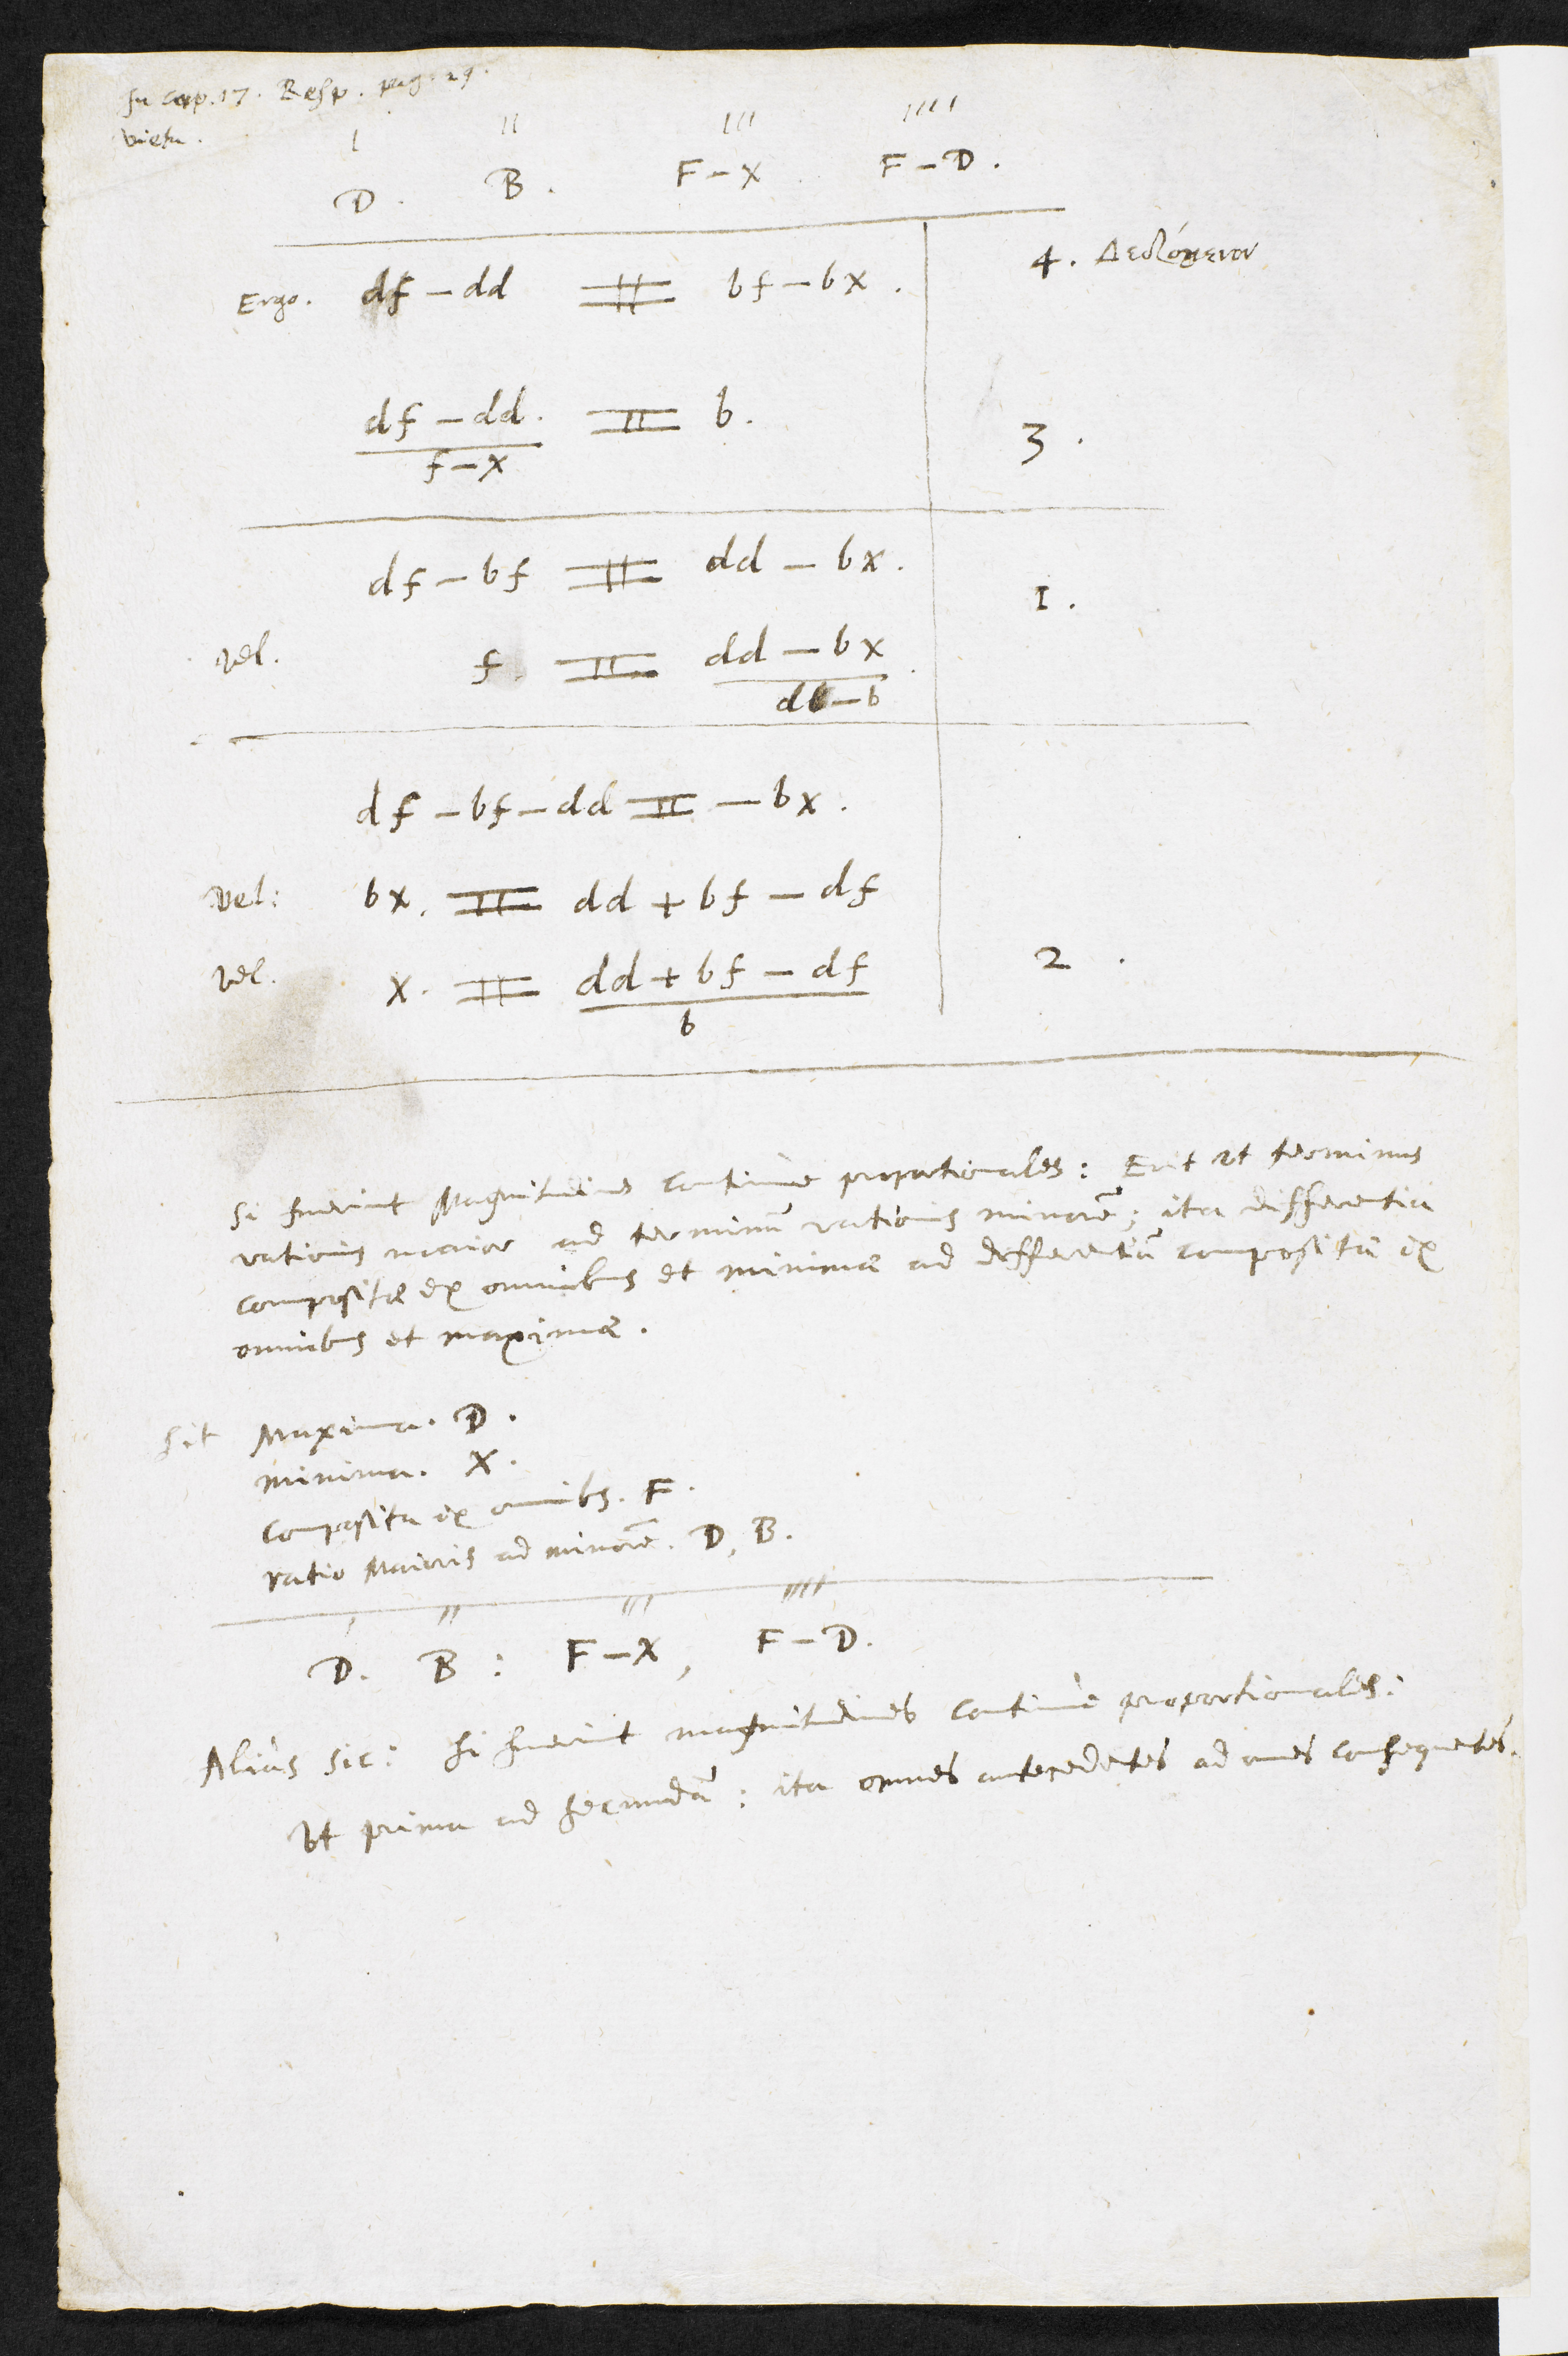 In cap. 17. Resp. pag. 29.
vieta.
I II III IIII
D. B. F-X. F-D.
Ergo. df - dd = bf - bx. 4. Δεδόμενον
df - dd. = b. 3.
f - x
df - bf = dd - bx. 1.
vel. f. = dd - bx.
d - b
df - bf - dd = - bx.
vel: bx. = dd + bf - df
vel. x. = dd + bf - df 2.
b
Si fuerint Magnitudines continue proportionales: Erit ut terminus
rationis maior ad terminū rationis minorē; ita differentia
compositæ ex omnibus et minimæ ad differentiā compositæ ex
omnibus et maximæ.
Sit Maxima. D.
minima. X.
composita ex omnibs. F.
ratio Maioris ad minorē. D, B.
I II III IIII
D. B: F-X, F-D.
Alias sic: Si fuerint magnitudines continue proportionales:
ut prima ad secundā: ita omnes antecedētes ad omēs consequētes.